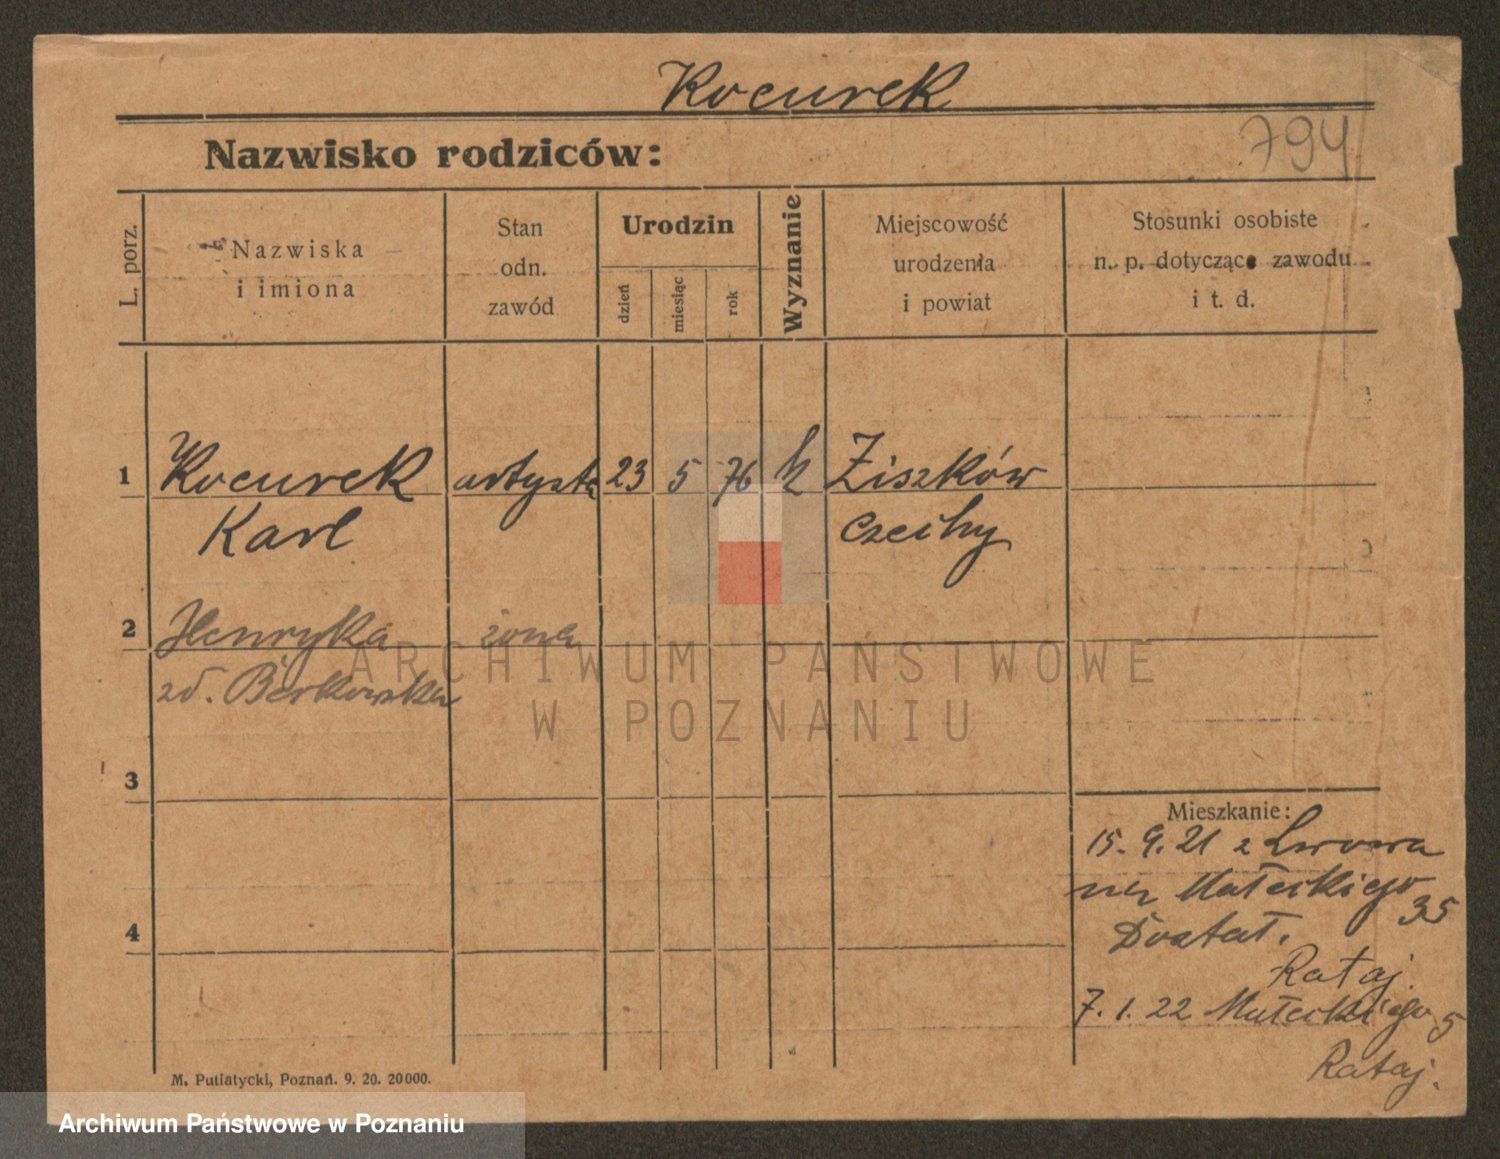 Kocurek
Nazwisko rodziców:
794
L. porz.
Nazwiska
i imiona
Stan
odn.
zawód
Urodzin
dzień
miesiąc
rok
Wyznanie
Miejscowość
urodzenia
i powiat
Stosunki osobiste
n. p. dotyczące zawodu
i t. d.
1 Kocurek artysta 23 5 76 k Ziszków
Karl Czechy
2 Henryka żona
zd. Berkowska
ARCHIWUM PAŃSTWOWE
W POZNANIU
3
Mieszkanie:
15. 9. 21 z Lwowa
na Małeckiego
35
4
Rataj.
7. 1. 22 Małeckiego 5
Rataj.
M. Putiatycki, Poznań. 9. 20. 20000.
Archiwum Państwowe w Poznaniu